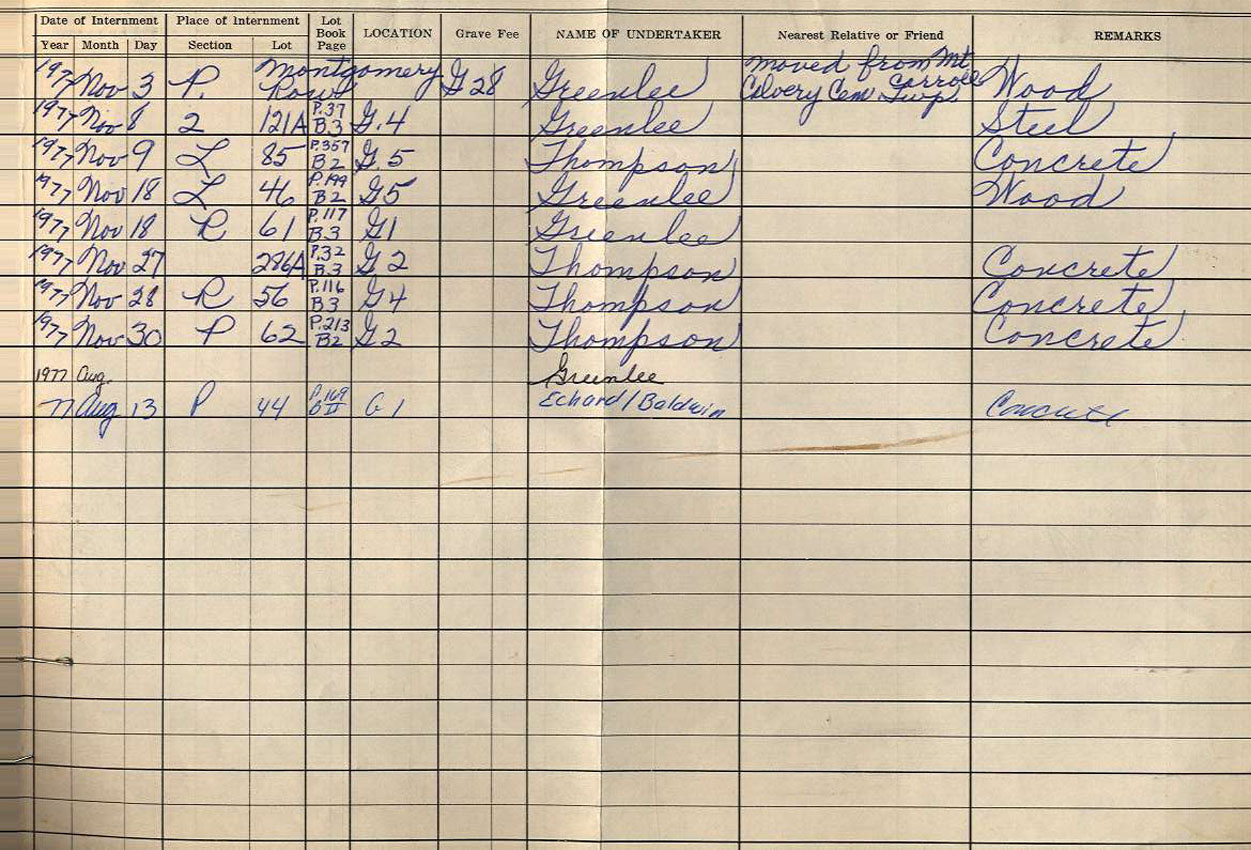 Date of Internment Place of Internment Lot Book Page LOCATION Grave Fee NAME OF UNDERTAKER Nearest Relative or Friend REMARKS
Year Month Day Section Lot
1977 Nov 3 P. Montgomery Row G 28 Greenlee moved from Mt Calvery Cem Carroll Twp. Wood
1977 Nov 8 2 121A P.37 B.3 G.4 Greenlee Steel
1977 Nov 9 L 85 P.357 B2 G 5 Thompson Concrete
1977 Nov 18 L 46 P.199 B2 G5 Greenlee Wood
1977 Nov 18 R 61 P.117 B.3 G1 Greenlee
1977 Nov 27 286A P.32 B.3 G 2 Thompson Concrete
1977 Nov 28 R 56 P.116 B3 G4 Thompson Concrete
1977 Nov 30 P 62 P.213 B2 G2 Thompson Concrete
1977 Aug. Greenlee
77 Aug 13 P 44 P.169 B II G 1 Echard/Baldwin Concrete